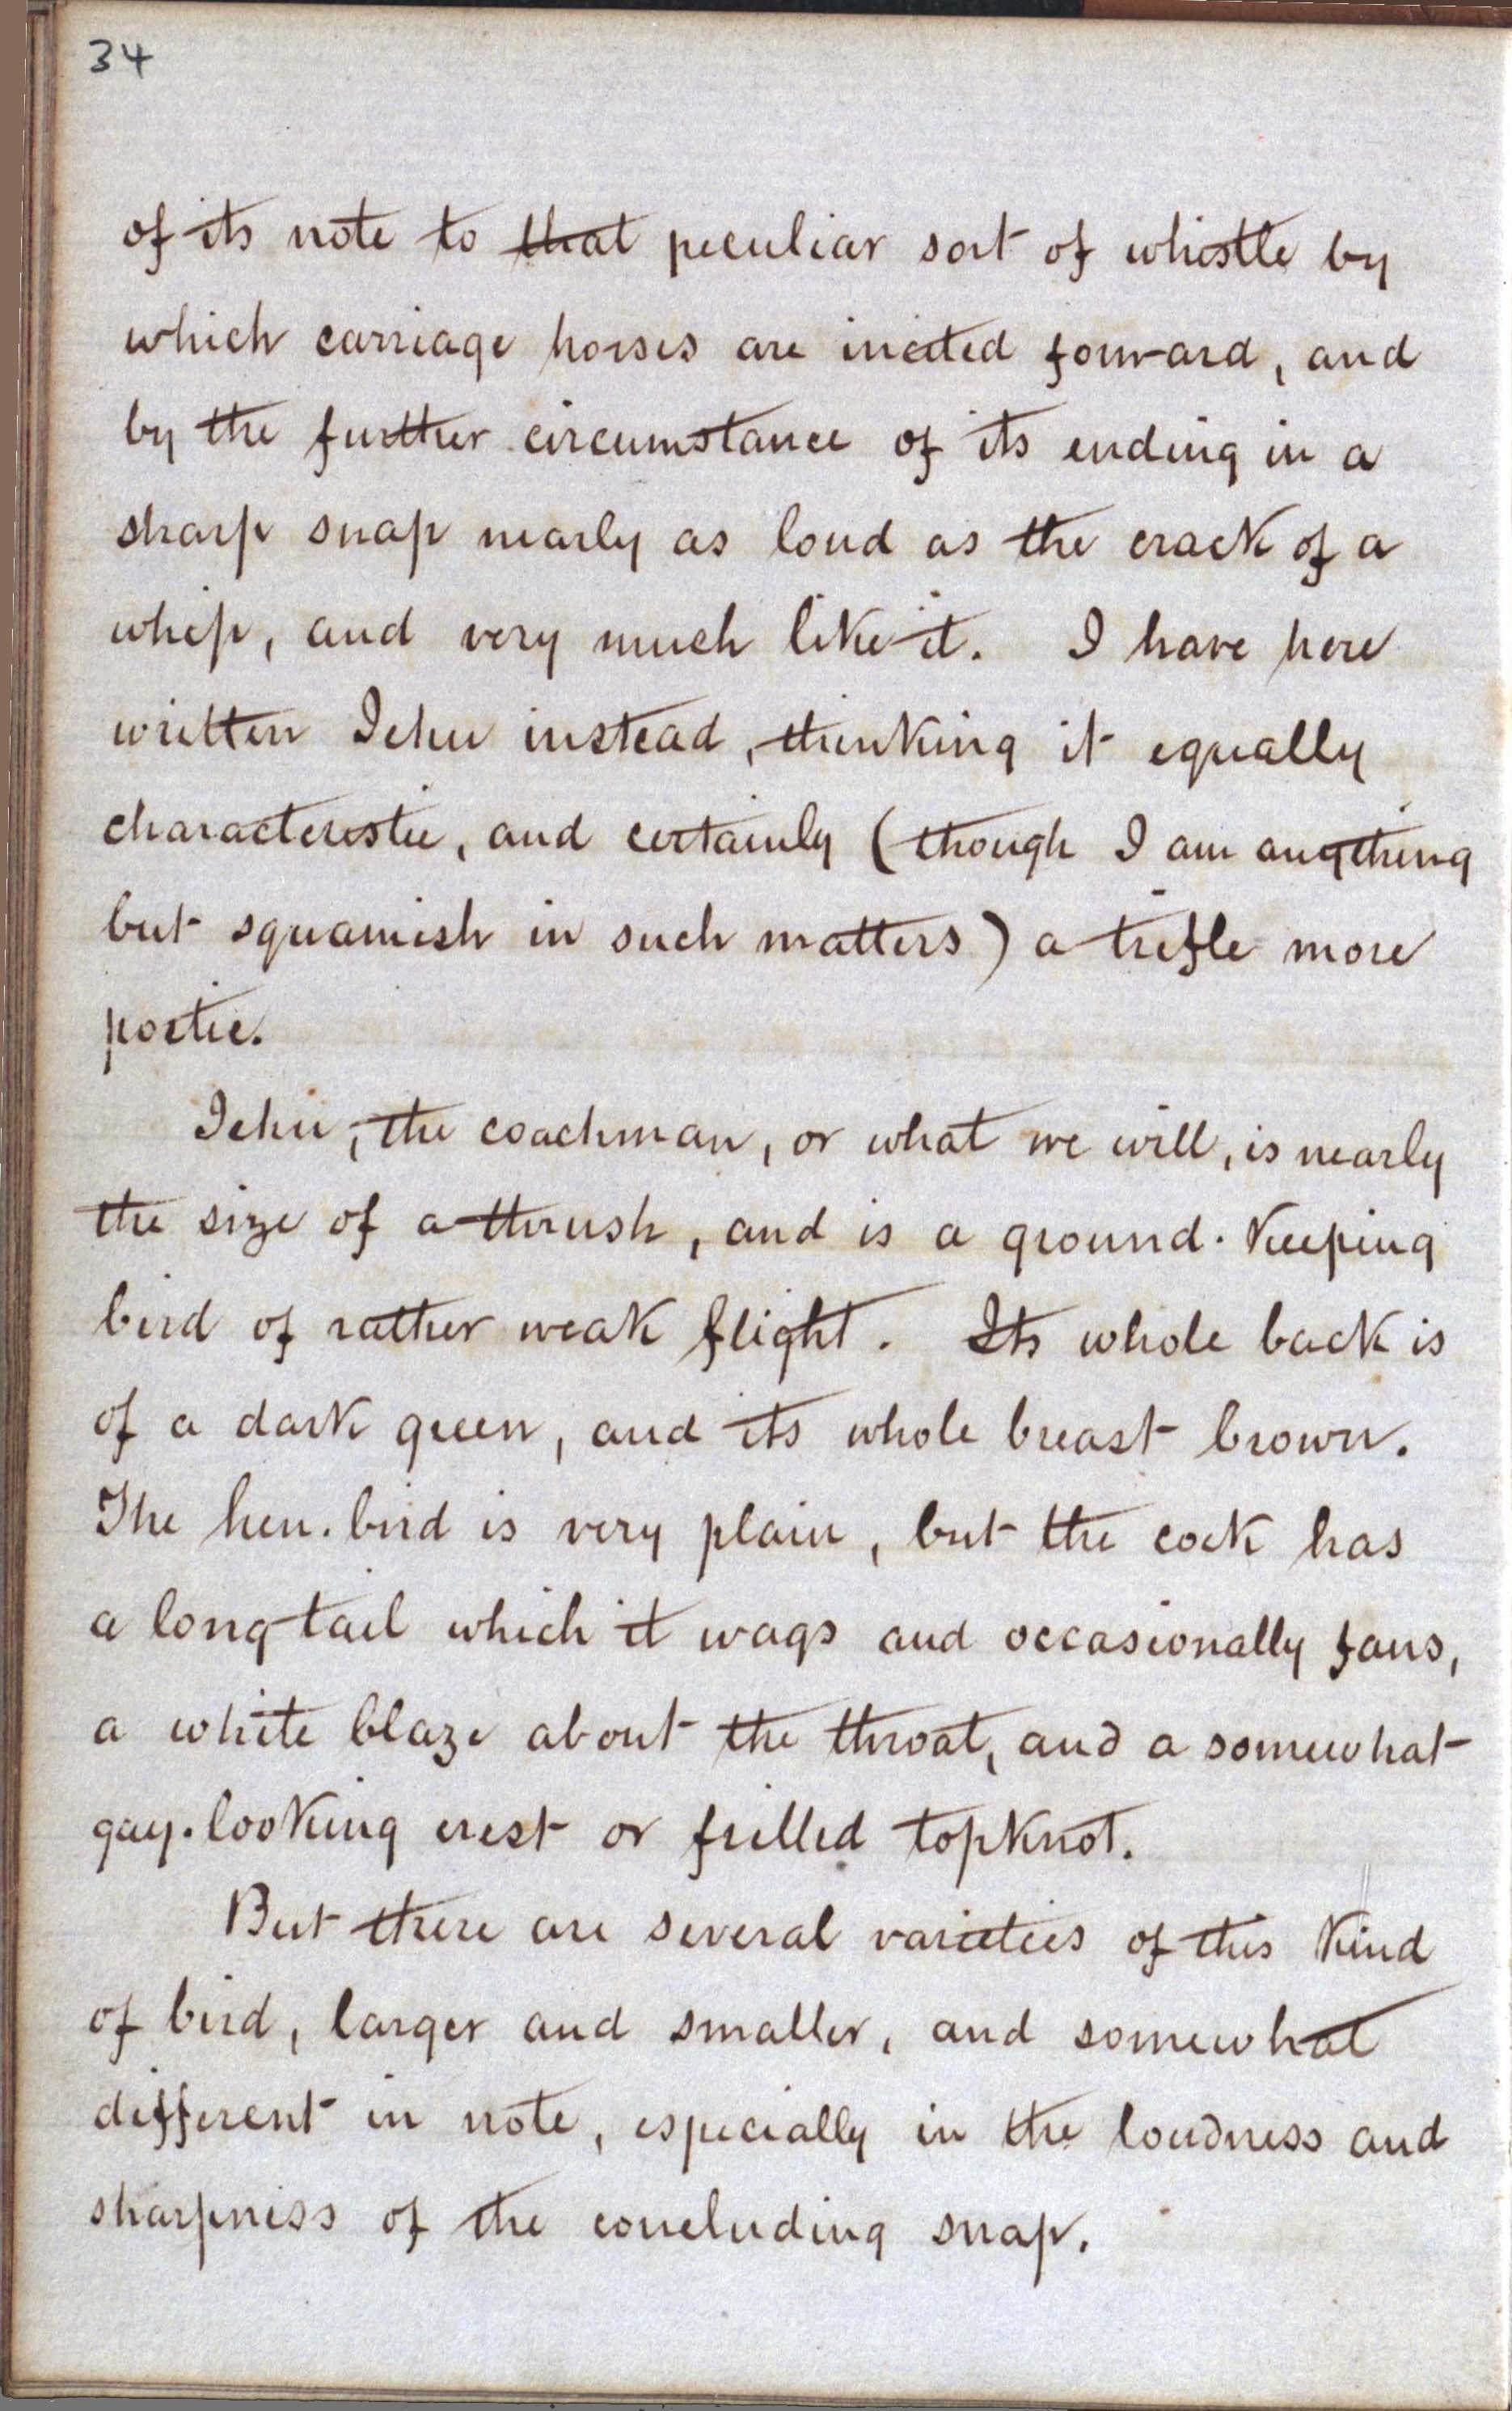 34
of its note to that peculiar sort of whistle by
which carriage horses are incited forward, and
by the further circumstance of its ending in a
sharp snap nearly as loud as the crack of a
whip, and very much like it. I have here
written Jehu instead, thinking it equally
characteristic, and certainly (though I am anything
but squamish in such matters) a trifle more
poetic.
Jehu, the coachman, or what we will, is nearly
the size of a thrush, and is a ground-keeping
bird of rather weak flight. Its whole back is
of a dark green, and its whole breast brown.
The hen-bird is very plain, but the cock has
a long tail which it wags and occasionally fans,
a white blaze about the throat, and a somewhat
gay-looking crest or frilled topknot.
But there are several varieties of this kind
of bird, larger and smaller, and somewhat
different in note, especially in the loudness and
sharpness of the concluding snap.